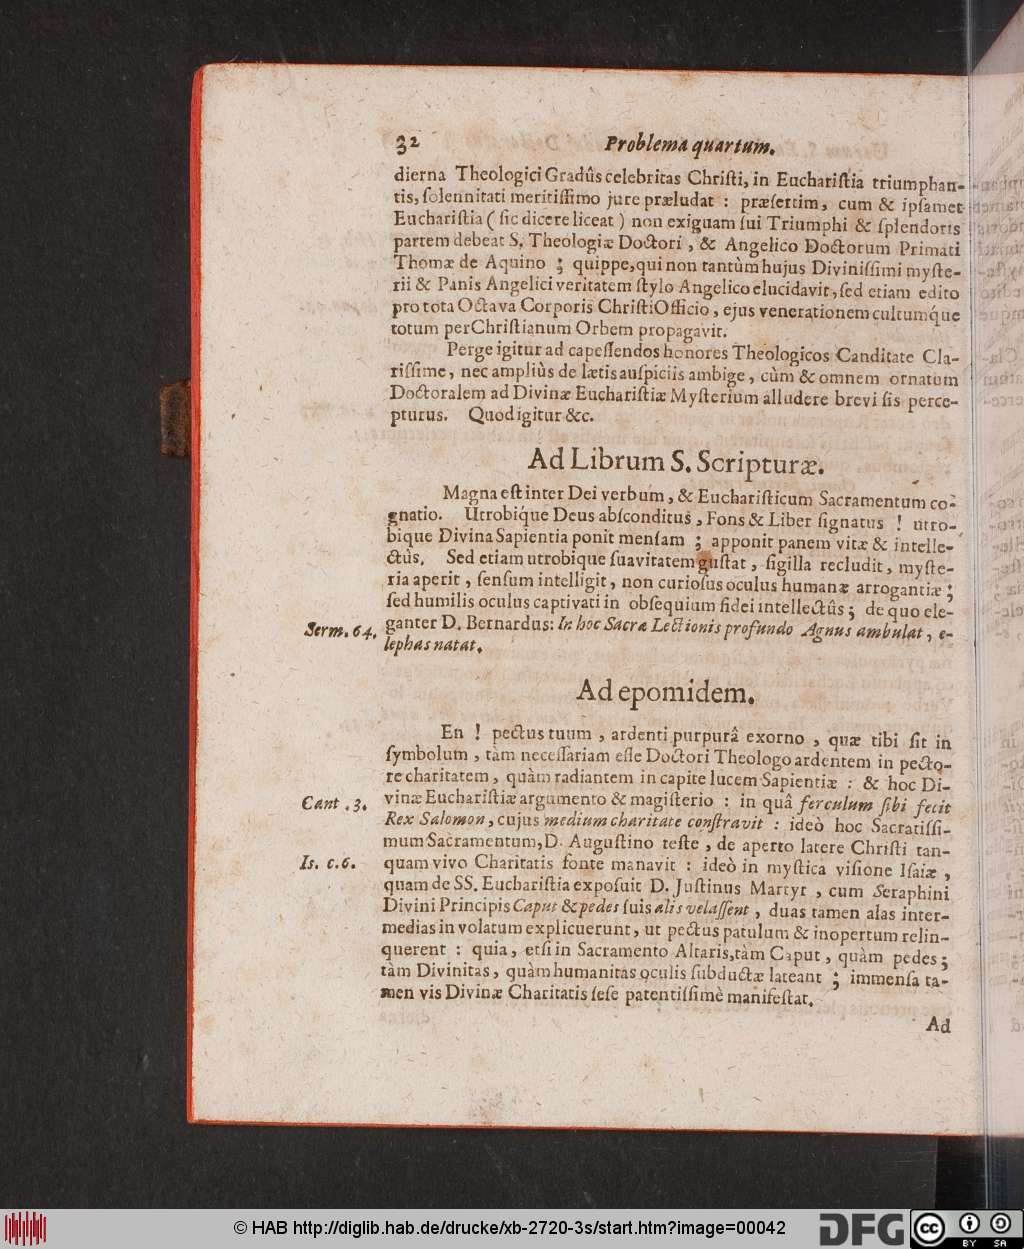 32 Problema quartum.
dierna Theologici Gradûs celebritas Christi, in Eucharistia triumphan-
tis, solennitati meritissimo jure præludat : præsertim, cum & ipsamet
Eucharistia ( sic dicere liceat ) non exiguam sui Triumphi & splendoris
partem debeat S. Theologiæ Doctori , & Angelico Doctorum Primati
Thomæ de Aquino ; quippe, qui non tantùm hujus Divinissimi myste-
rii & Panis Angelici veritatem stylo Angelico elucidavit, sed etiam edito
pro tota Octava Corporis Christi Officio , ejus venerationem cultumq́ue
totum per Christianum Orbem propagavit.
Perge igitur ad capessendos honores Theologicos Canditate Cla-
rissime, nec ampliùs de lætis auspiciis ambige , cùm & omnem ornatum
Doctoralem ad Divinæ Eucharistiæ Mysterium alludere brevi sis perce-
pturus. Quod igitur &c.
Ad Librum S. Scripturæ.
Magna est inter Dei verbum , & Eucharisticum Sacramentum co-
gnatio. Utrobiq́ue Deus absconditus , Fons & Liber signatus ! utro-
bique Divina Sapientia ponit mensam ; apponit panem vitæ & intelle-
ctûs. Sed etiam utrobique suavitatem gustat , sigilla recludit , myste-
ria aperit , sensum intelligit , non curiosus oculus humanæ arrogantiæ ;
sed humilis oculus captivati in obsequium fidei intellectûs ; de quo ele-
Serm. 64. ganter D. Bernardus: In hoc Sacræ Lectionis profundo Agnus ambulat , e-
lephas natat.
Ad epomidem.
En ! pectus tuum , ardenti purpurâ exorno , quæ tibi sit in
symbolum , tàm necessariam esse Doctori Theologo ardentem in pecto-
re charitatem , quàm radiantem in capite lucem Sapientiæ : & hoc Di-
Cant . 3. vinæ Eucharistiæ argumento & magisterio : in quâ ferculum sibi fecit
Rex Salomon , cujus medium charitate constravit : ideò hoc Sacratissi-
mum Sacramentum, D. Augustino teste , de aperto latere Christi tan-
Is. c. 6. quam vivo Charitatis fonte manavit : ideò in mystica visione Isaiæ ,
quam de SS. Eucharistia exposuit D. Justinus Martyr , cum Seraphini
Divini Principis Caput & pedes suis alis velassent , duas tamen alas inter-
medias in volatum explicuerunt , ut pectus patulum & inopertum relin-
querent : quia , etsi in Sacramento Altaris, tàm Caput , quàm pedes ;
tàm Divinitas , quàm humanitas oculis subductæ lateant ; immensa ta-
men vis Divinæ Charitatis sese patentissimè manifestat.
Ad
© HAB http://diglib.hab.de/drucke/xb-2720-3s/start.htm?image=00042
DFG
cc BY SA